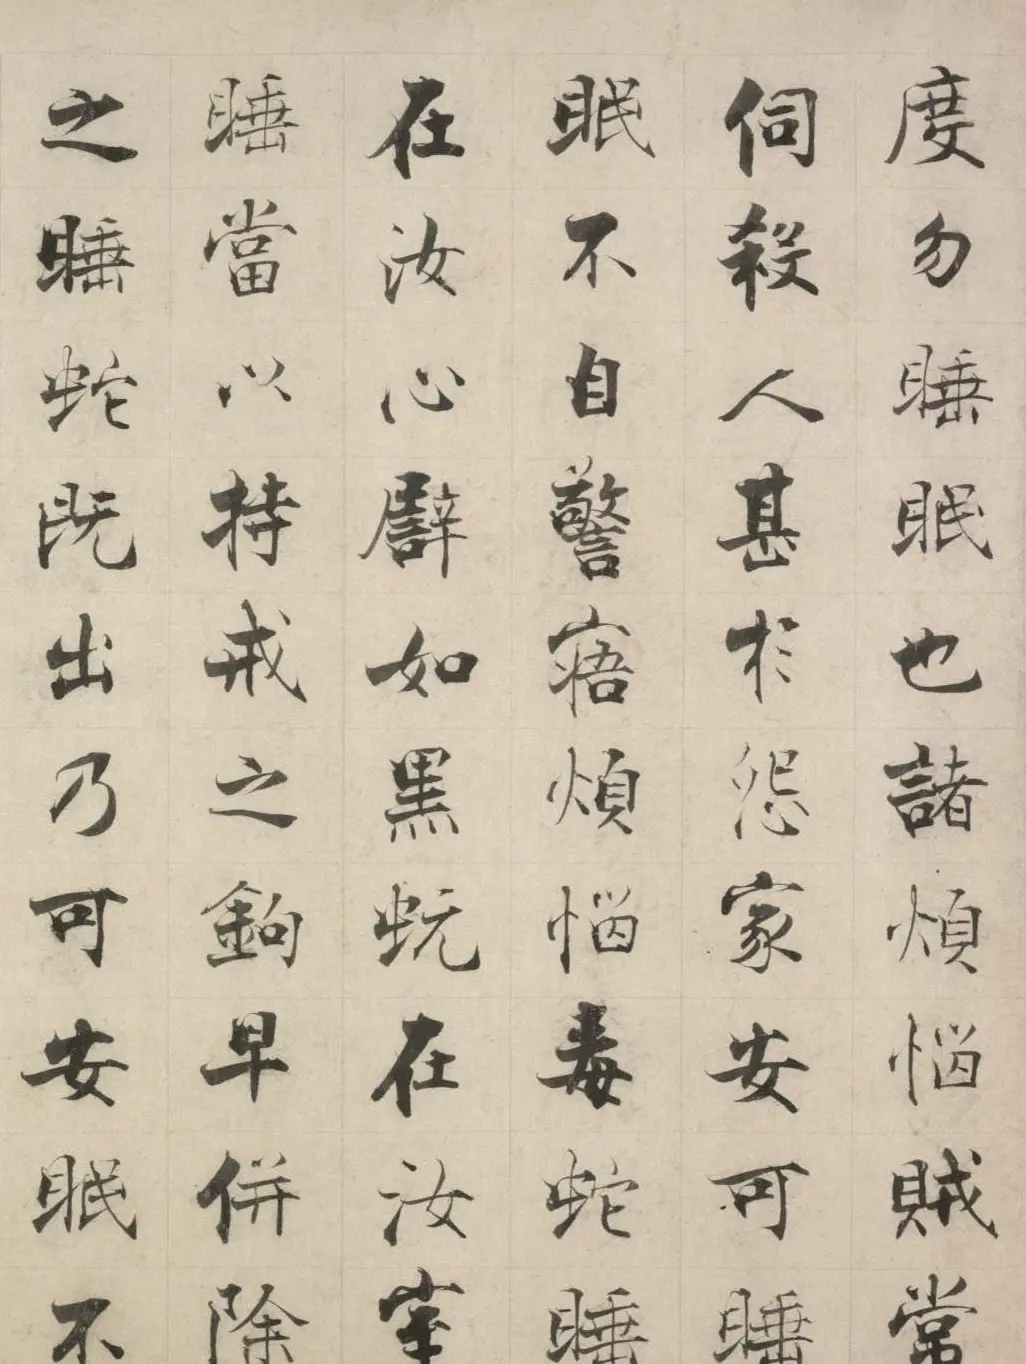 度勿睡眠也諸煩惱賊常
伺殺人甚於怨家安可睡
眠不自警寤煩惱毒蛇睡
在汝心譬如黑蚖在汝室
睡當以持戒之鉤早併除
之睡蛇既出乃可安眠不